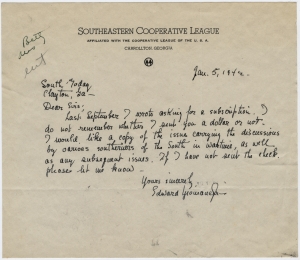 SOUTHEASTERN COOPERATIVE LEAGUE
AFFILIATED WITH THE COOPERATIVE LEAGUE OF THE U. S. A.
CARROLLTON, GEORGIA
Jan. 5, 1942
South Today
Clayton, Ga
Dear Sirs:
Last September I wrote asking for a subscription. I
do not remember whether I sent you a dollar or not.
I would like a copy of the issue carrying the discussions
by various southerners of the South in wartime, as well
as any subsequent issues. If I have not sent the check,
please let me know.
Yours sincerely
Edward Yeomans Jr.